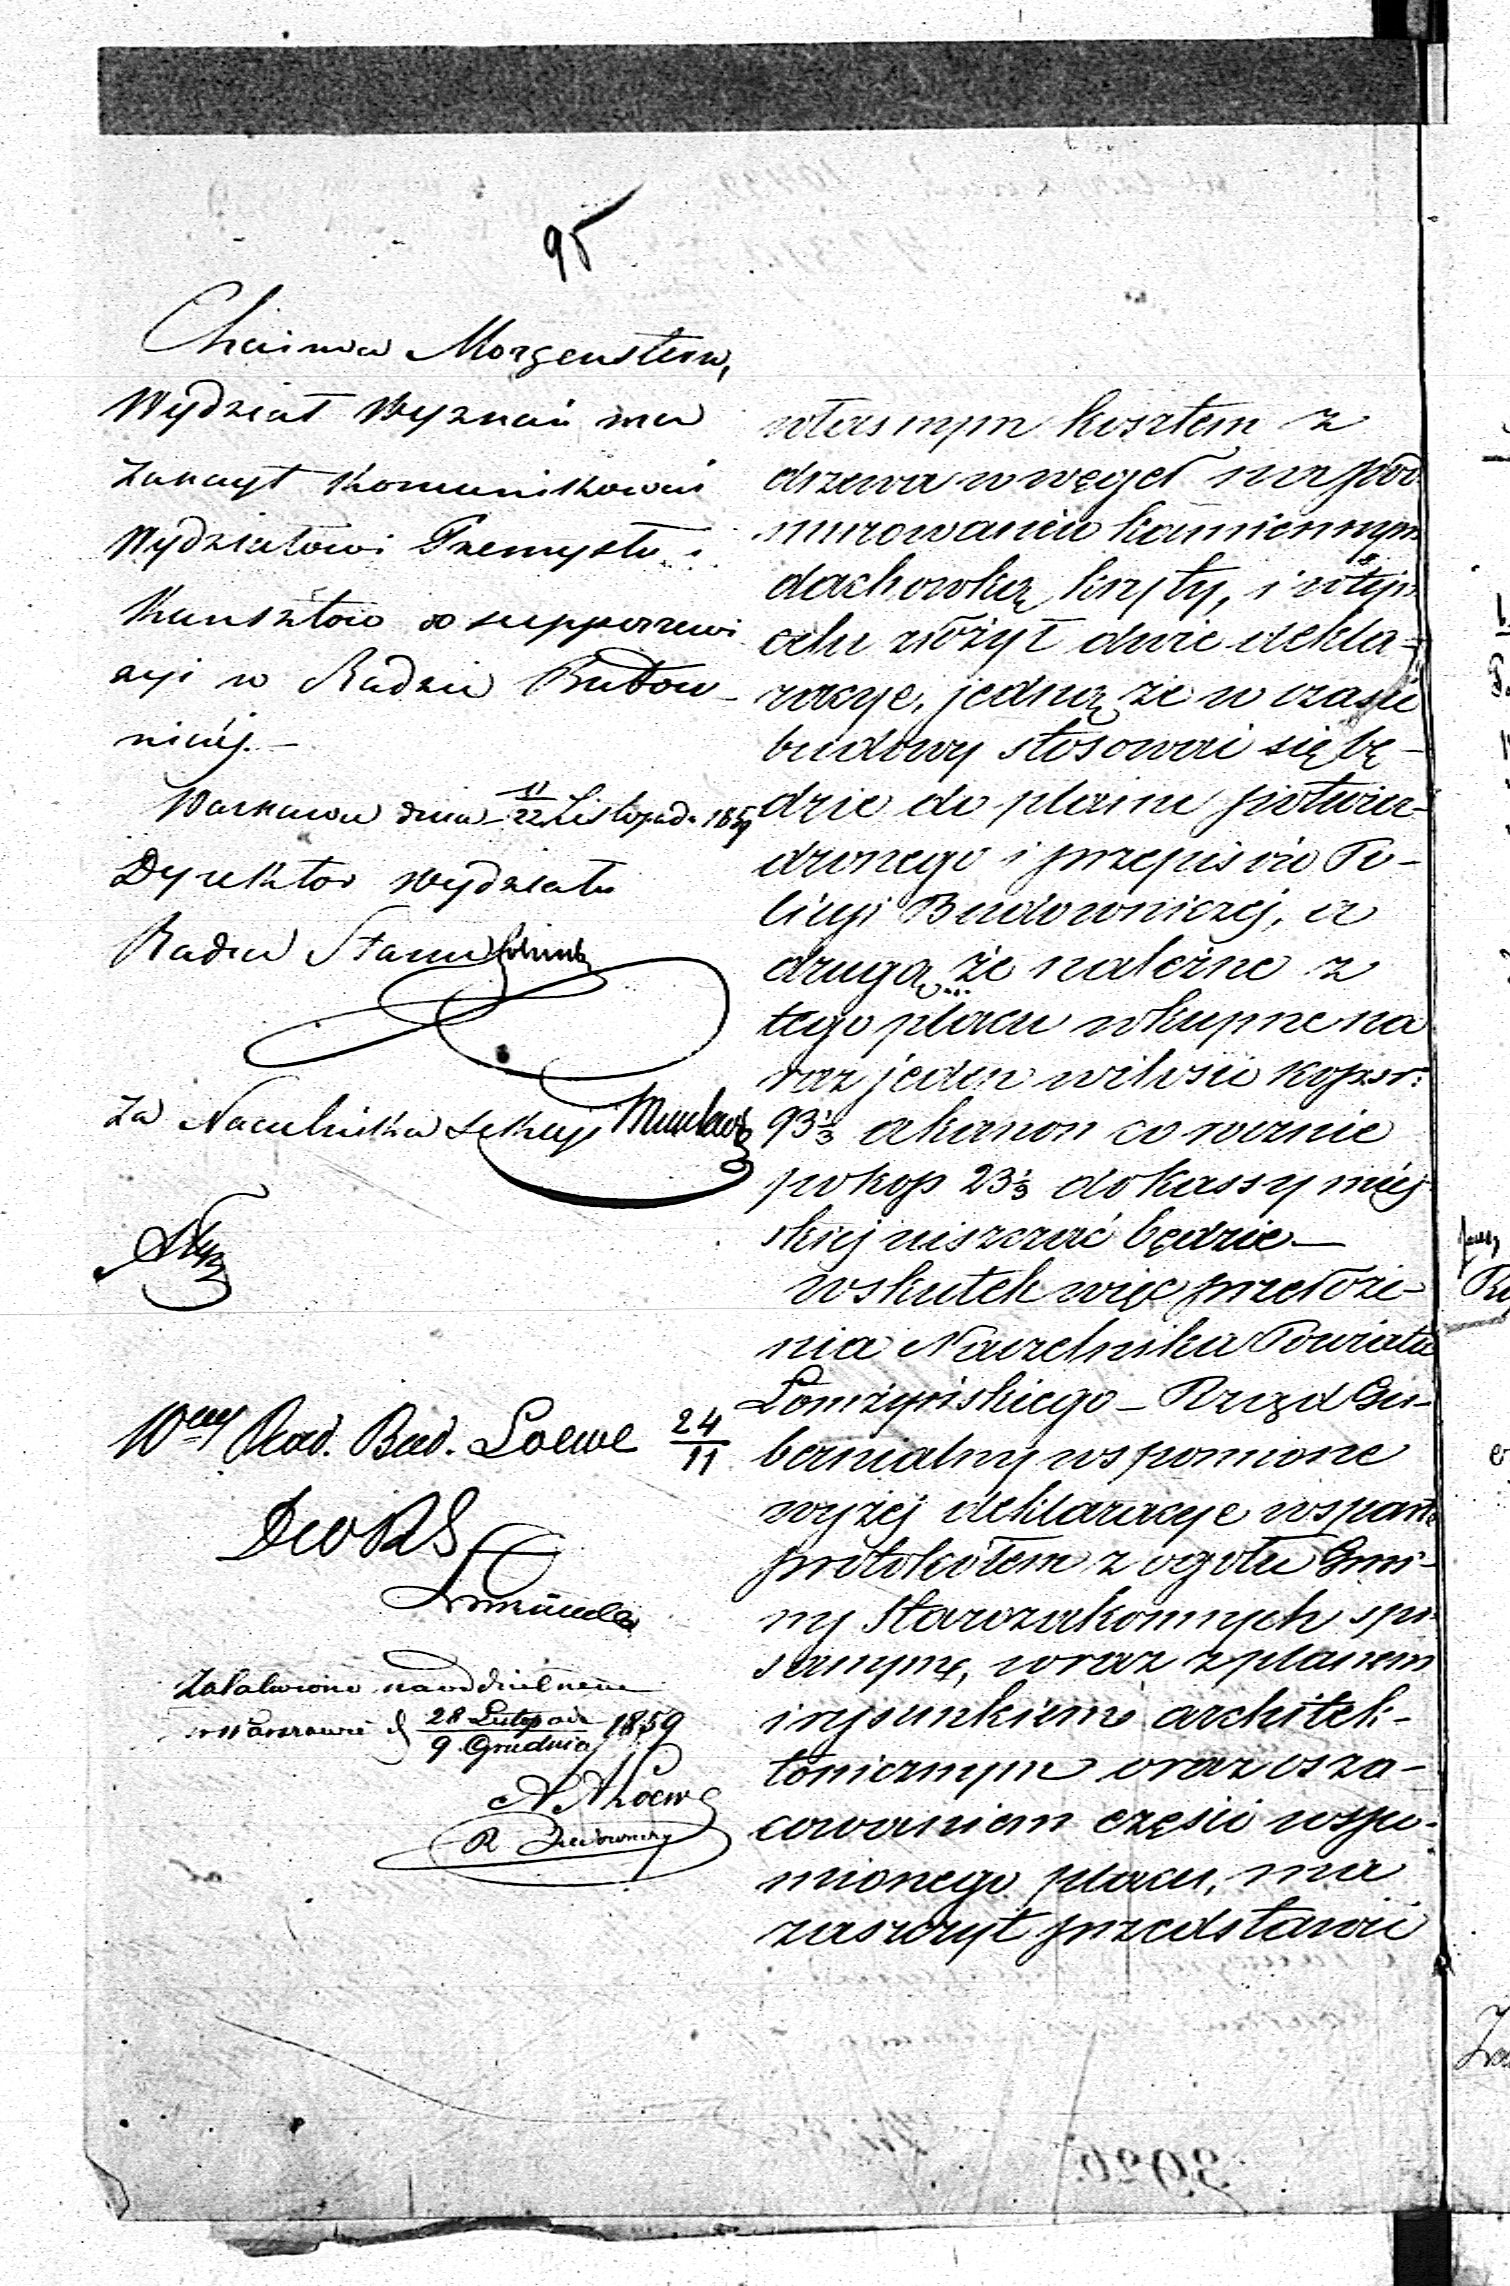 95
Chaima Morgenstern,
Wydział Wyznań ma
zaszczyt komunikować
Wydziałowi Przemysłu i
Kunsztów do supperrewi
zyi w Radzie Budow-
niczéj.-
Warszawa dnia 11/22 Listopada 1859
Dyrektor Wydziału
Radca Stanu
za Naczelnika Sekcyi
Wny Rad. Bud. Loewe 24/11
Do RS
Załatwiono na oddzielnem
w Warszawie d 28 Listopada / 9 Grudnia 1859
A Loewe
R Budowniczy
własnym kosztem z
drzewa w węgeł na pod
murowaniu kamiennym
dachówką kryty, i w tym
celu złożył dwie dekla-
racye, jedną że w czasie
budowy stosować się bę-
dzie do planu potwier-
dzonego i przepisów Po-
licyi Budowniczej, a
drugą że należne z
tego placu wkupne na
raz jeden w ilości kop. sr.
93⅓ a kanon co rocznie
po kop 23⅓ do Kassy miéj
skiej uiszczać będzie-
w skutek więc przełoże-
nia Naczelnika Powiatu
Łomżyńskiego - Rząd Gu-
bernialny wspomione
wyżej deklaracye wsparte
protokółem z ogółu Gmi-
ny Starozakonnych spi-
sanymę, wraz z planem
i rysunkiem architek-
tonicznym oraz osza-
cowaniem części wspo-
mionego placu, ma
zaszczyt przedstawić